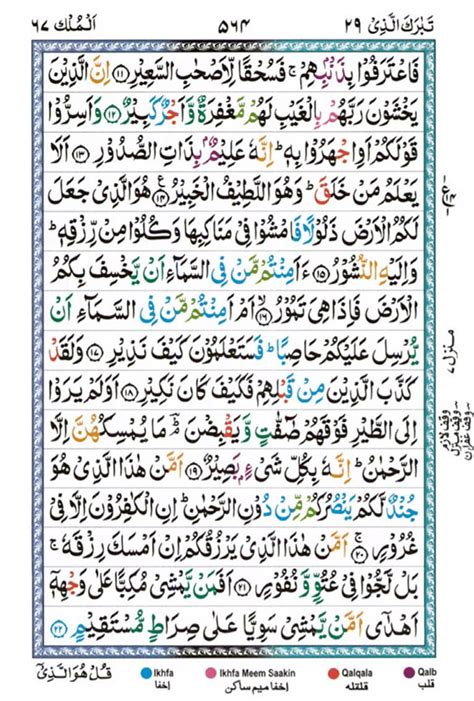 تَبٰرَكَ الَّذِیۡ ۲۹ ۵۶۴ اَلۡمُلۡك ۶۷
فَاعۡتَرَفُوۡا بِذَنۡۢبِهِمۡ‌ۚ فَسُحۡقًا لِّاَصۡحٰبِ السَّعِيۡرِ ﴿۱۱﴾ اِنَّ الَّذِيۡنَ
يَخۡشَوۡنَ رَبَّهُمۡ بِالۡغَيۡبِ لَهُمۡ مَّغۡفِرَةٌ وَّاَجۡرٌ كَبِيۡرٌ ﴿۱۲﴾ وَاَسِرُّوۡا
قَوۡلَكُمۡ اَوِ اجۡهَرُوۡا بِهٖؕ اِنَّهٗ عَلِيۡمٌۢ بِذَاتِ الصُّدُوۡرِ ﴿۱۳﴾ اَلَا
يَعۡلَمُ مَنۡ خَلَقَؕ وَهُوَ اللَّطِيۡفُ الۡخَبِيۡرُ ﴿۱۴﴾ هُوَ الَّذِىۡ جَعَلَ
لَكُمُ الۡاَرۡضَ ذَلُوۡلًا فَامۡشُوۡا فِىۡ مَنَاكِبِهَا وَكُلُوۡا مِنۡ رِّزۡقِهٖؕ
وَاِلَيۡهِ النُّشُوۡرُ ﴿۱۵﴾ ءَاَمِنۡتُمۡ مَّنۡ فِى السَّمَآءِ اَنۡ يَّخۡسِفَ بِكُمُ
الۡاَرۡضَ فَاِذَا هِىَ تَمُوۡرُۙ ﴿۱۶﴾ اَمۡ اَمِنۡتُمۡ مَّنۡ فِى السَّمَآءِ اَنۡ
يُّرۡسِلَ عَلَيۡكُمۡ حَاصِبًاؕ فَسَتَعۡلَمُوۡنَ كَيۡفَ نَذِيۡرِ ﴿۱۷﴾ وَلَقَدۡ
كَذَّبَ الَّذِيۡنَ مِنۡ قَبۡلِهِمۡ فَكَيۡفَ كَانَ نَكِيۡرِ ﴿۱۸﴾ اَوَلَمۡ يَرَوۡا
اِلَى الطَّيۡرِ فَوۡقَهُمۡ صٰٓفّٰتٍ وَّيَقۡبِضۡنَؔۘؕ مَا يُمۡسِكُهُنَّ اِلَّا
الرَّحۡمٰنُؕ اِنَّهٗ بِكُلِّ شَىۡءٍۢ بَصِيۡرٌ ﴿۱۹﴾ اَمَّنۡ هٰذَا الَّذِىۡ هُوَ
جُنۡدٌ لَّكُمۡ يَنۡصُرُكُمۡ مِّنۡ دُوۡنِ الرَّحۡمٰنِؕ اِنِ الۡكٰفِرُوۡنَ اِلَّا فِىۡ
غُرُوۡرٍۚ ﴿۲۰﴾ اَمَّنۡ هٰذَا الَّذِىۡ يَرۡزُقُكُمۡ اِنۡ اَمۡسَكَ رِزۡقَهٗ‌ۚ
بَلۡ لَّجُّوۡا فِىۡ عُتُوٍّ وَّنُفُوۡرٍ ﴿۲۱﴾ اَفَمَنۡ يَّمۡشِىۡ مُكِبًّا عَلٰى وَجۡهِهٖۤ
اَهۡدٰٓى اَمَّنۡ يَّمۡشِىۡ سَوِيًّا عَلٰى صِرَاطٍ مُّسۡتَقِيۡمٍ ﴿۲۲﴾
منزل ۷
قُلۡ هُوَ الَّذِیۡۤ
Ikhfa Ikhfa Meem Saakin Qalqala Qalb
اخفا اخفا میم ساکن قلقله قلب